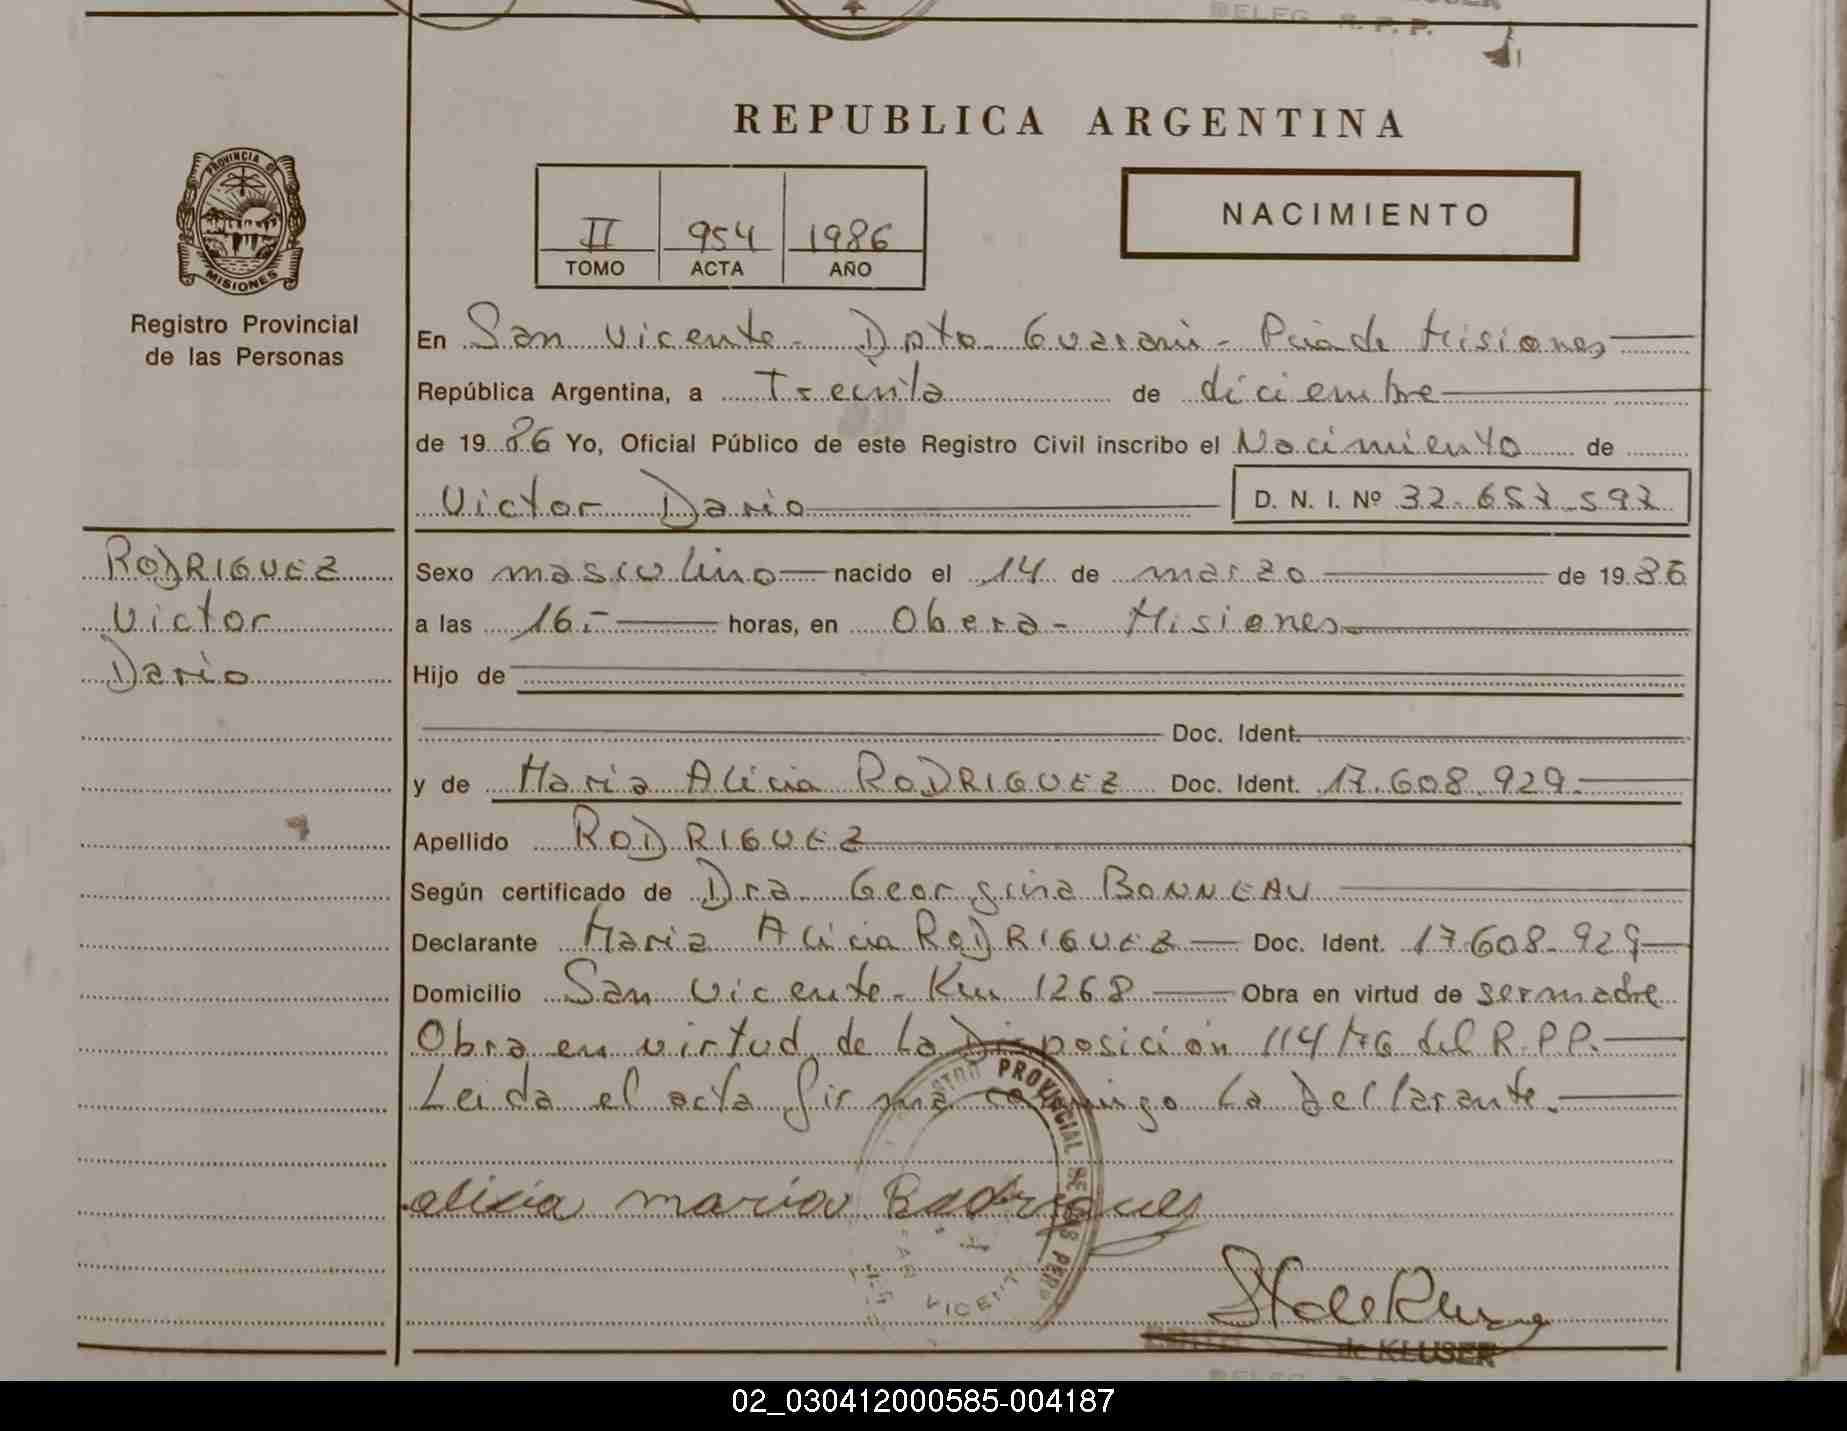 DELEG. R. P. P.
REPUBLICA ARGENTINA
PROVINCIA D
MISIONES
Registro Provincial
de las Personas
II 954 1986
TOMO ACTA AÑO
NACIMIENTO
En San Vicente - Dpto Guarani - Pcia de Misiones
República Argentina, a Treinta de diciembre
de 1986 Yo, Oficial Público de este Registro Civil inscribo el Nacimiento de
Victor Dario D. N. I. Nº 32.657.597
RODRIGUEZ
Victor
Dario
Sexo masculino nacido el 14 de marzo de 1986
a las 16.- horas, en Obera - Misiones
Hijo de
Doc. Ident.
y de Maria Alicia RODRIGUEZ Doc. Ident. 17.608.929.
Apellido RODRIGUEZ
Según certificado de Dra Georgina BONNEAU
Declarante Maria Alicia RODRIGUEZ Doc. Ident. 17.608.929
Domicilio San Vicente - Km 1268 Obra en virtud de ser madre
Obra en virtud de la Disposición 114/76 del R.P.P.
Leida el acta firma conmigo la Declarante.
PROVINCIAL DE LAS PERS
VICENT
alicia maria Rodrigues
de KLUSER
02_030412000585-004187